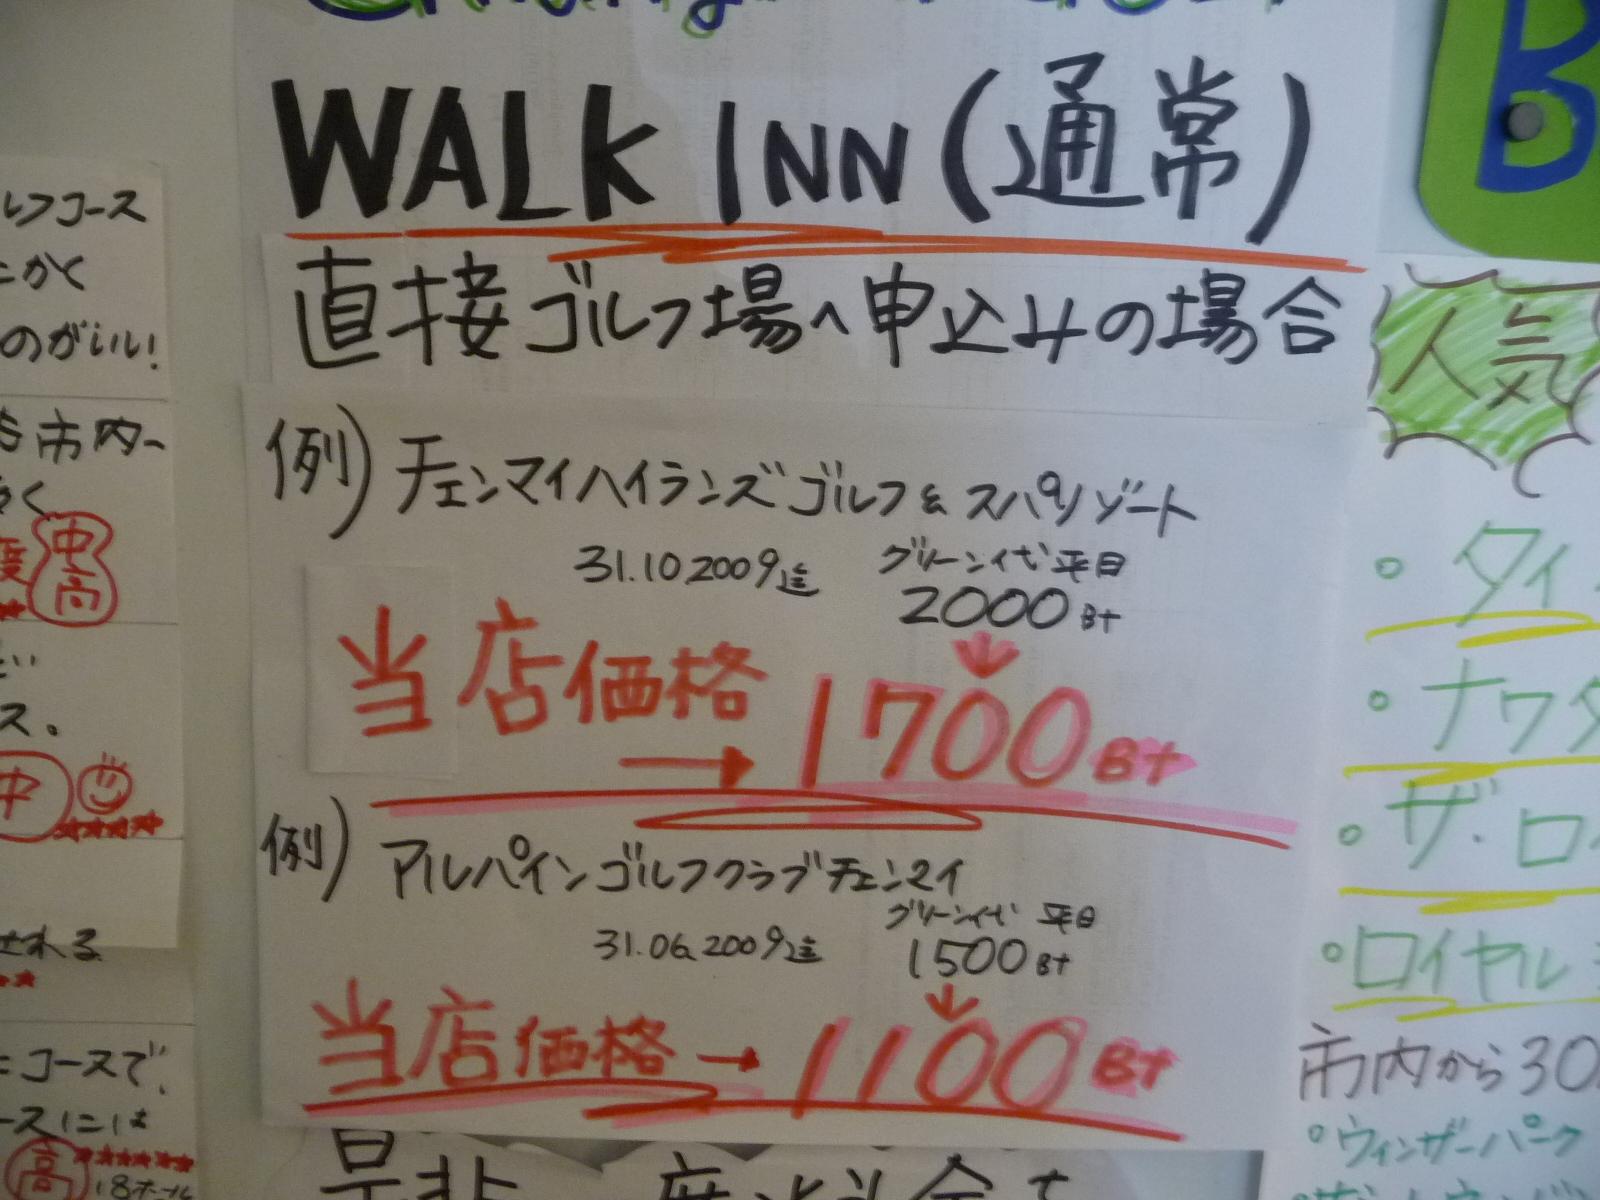 WALK INN (通常)
直接ゴルフ場へ申込みの場合
例) チェンマイハイランズゴルフ&スパリゾート
31.10.2009迄
グリーン代 平日
2000Bt
当店価格
→1700Bt
例) アルパインゴルフクラブチェンマイ
31.06.2009迄
グリーン代 平日
1500Bt
当店価格→1100Bt
ルフコース
かく
のがいい!
市内
中
高
ス。
中
せれる
コースで、
ースには
高
18ホール
B
人気
。タイ
。ナワタ
。ザ・ロイ
。ロイヤル
市内から30
。ウィンザーパーク